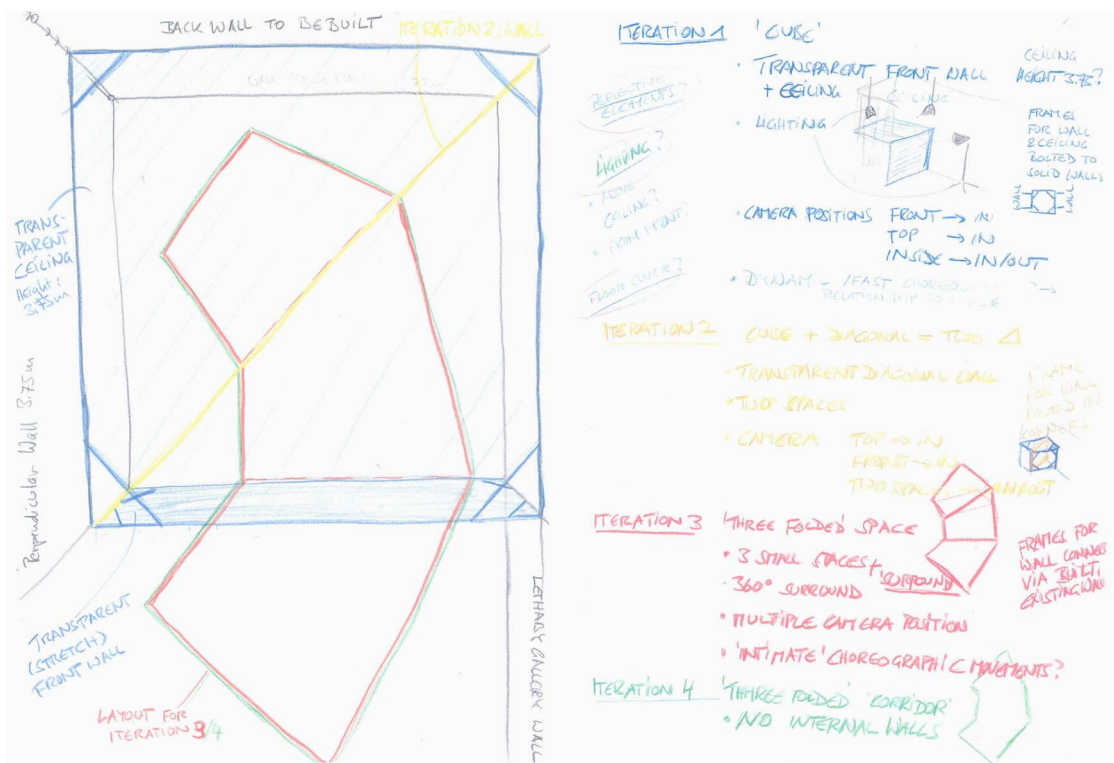 BACK WALL TO BE BUILT
ITERATION 2: WALL
TRANS-
PARENT
CEILING
Height:
3.75m
Perpendicular Wall 3.75m
TRANSPARENT
(STRETCH)
FRONT WALL
LAYOUT FOR
ITERATION 3/4
LETHABY GALLERY WALL
ITERATION 1 'CUBE'
• TRANSPARENT FRONT WALL
+ CEILING
CEILING
• LIGHTING
CEILING
HEIGHT 3.75?
FRAMES
FOR WALL
& CEILING
BOLTED TO
SOLID WALLS
WALL
WALL
REFLECTIVE
ELEMENTS?
LIGHTING?
• ABOVE
CEILING?
• FROM FRONT?
FLOOR COVER?
• CAMERA POSITIONS FRONT → IN
TOP → IN
INSIDE → IN/OUT
• DYNAMI /FAST CHOREO
RELATIONSHIP
ITERATION 2 CUBE + DIAGONAL = TWO △
• TRANSPARENT DIAGONAL WALL
• TWO SPACES
• CAMERA TOP → IN
FRONT → IN
TWO SPA → IN/OUT
FRAME
FOR WALL
BOLTED IN
CORNERS
ITERATION 3 'THREE FOLDED' SPACE
• 3 SMALL SPACES + 'SURROUND'
• 360° SURROUND
• MULTIPLE CAMERA POSITION
• 'INTIMATE' CHOREOGRAPHIC MOVEMENTS?
FRAMES FOR
WALL CONNEC
VIA BUILT,
EXISTING WALL
ITERATION 4 'THHREE FOLDED' 'CORRIDOR'
• NO INTERNAL WALLS